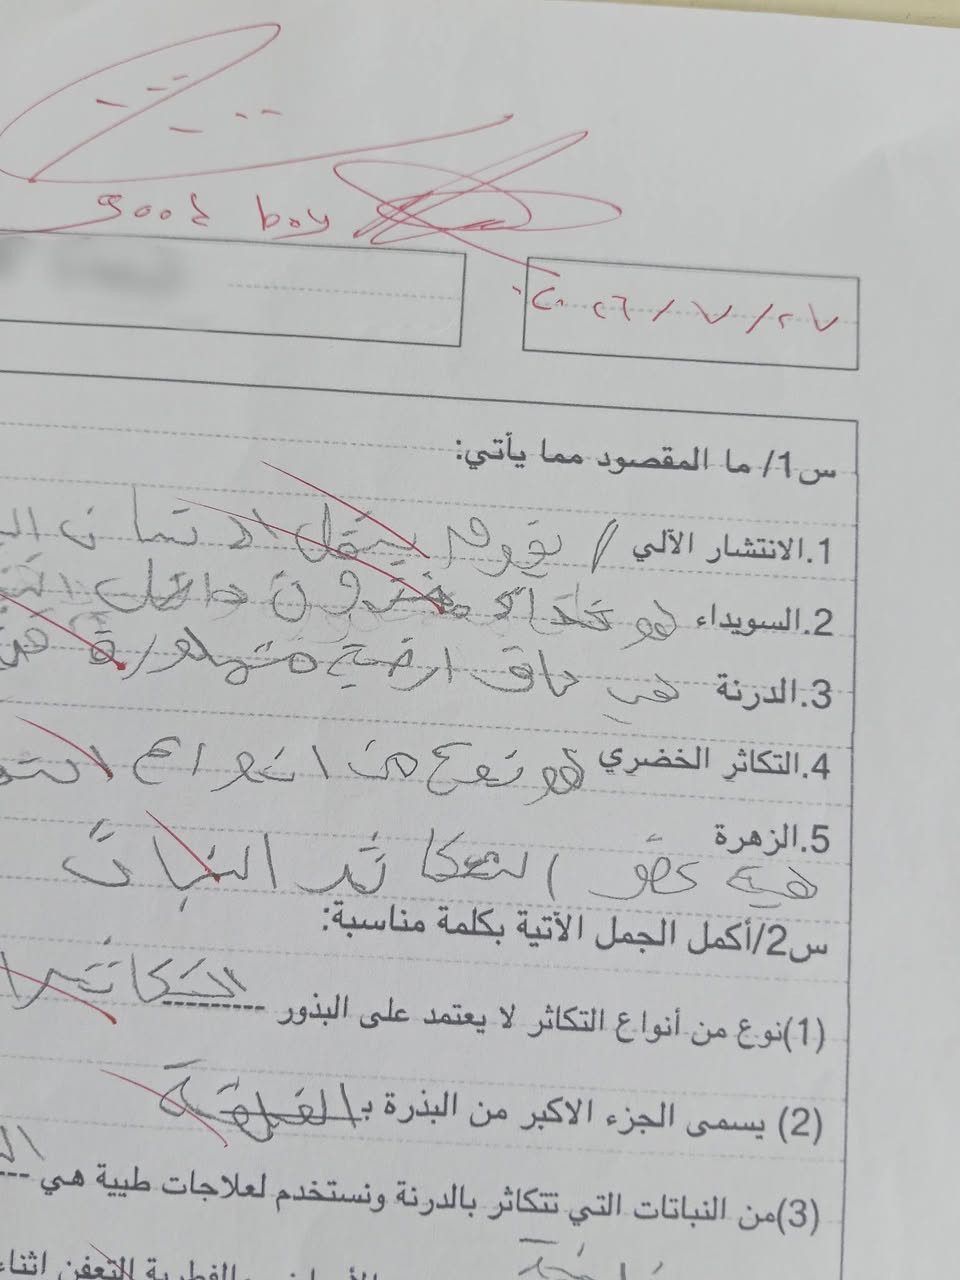 good boy
٢٠٢٦/٧/٢٧
س1/ ما المقصود مما يأتي:
1.الانتشار الآلي / يقوم بنقل
2.السويداء هو غذاء مخزون داخل
3.الدرنة هي ساق ارضية متحورة
4.التكاثر الخضري هو نوع من انواع
5.الزهرة
هي عضو التكاثر النبات
س2/أكمل الجمل الآتية بكلمة مناسبة:
(1)نوع من أنواع التكاثر لا يعتمد على البذور التكاثر
(2) يسمى الجزء الاكبر من البذرة بـ الفلقة
(3)من النباتات التي تتكاثر بالدرنة ونستخدم لعلاجات طبية هي
والفطرية التعفن اثناء